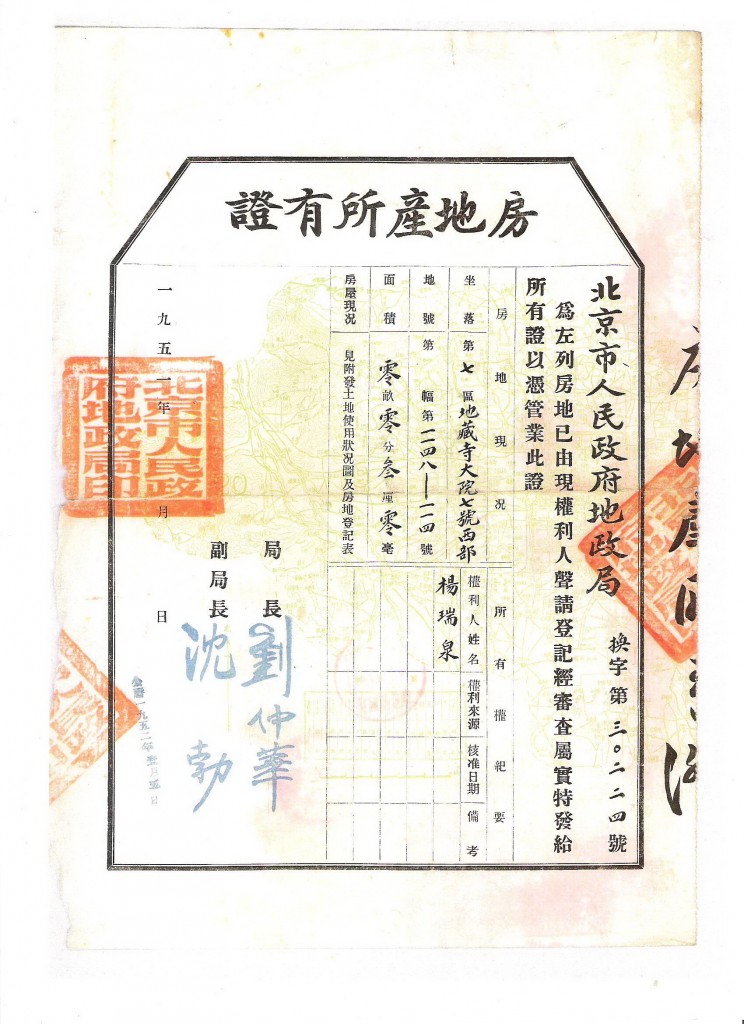 房地產所有證
北京市人民政府地政局 換字第三〇二二四號
爲左列房地已由現權利人聲請登記經審查屬實特發給
所有證以憑管業此證
房地現況
坐落 第七區地藏寺大院七號西部
地號 第 幅第一一四八—一一四號
面積 零畝零分叁厘零毫
房屋現況 見附發土地使用狀況圖及房地登記表
所有權紀要
權利人姓名 楊瑞泉
權利來源
核准日期
備考
局長 劉仲華
副局長 沈勃
一九五一年 月 日
北京市人民政
府地政局印